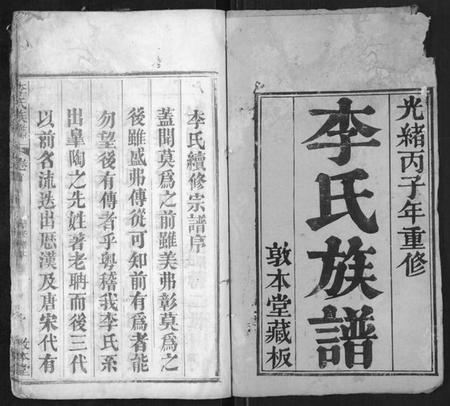 光緒丙子年重修
李氏族譜
敦本堂藏板
李氏續修宗譜序
蓋聞莫為之前雖美弗彰莫為之
後雖盛弗傳從可知前有為者能
勿望後有傳者乎粵稽我李氏系
出皐陶之先姓著老聃而後三代
以前名流迭出歷漢及唐宋代有
李氏族譜
敦本堂